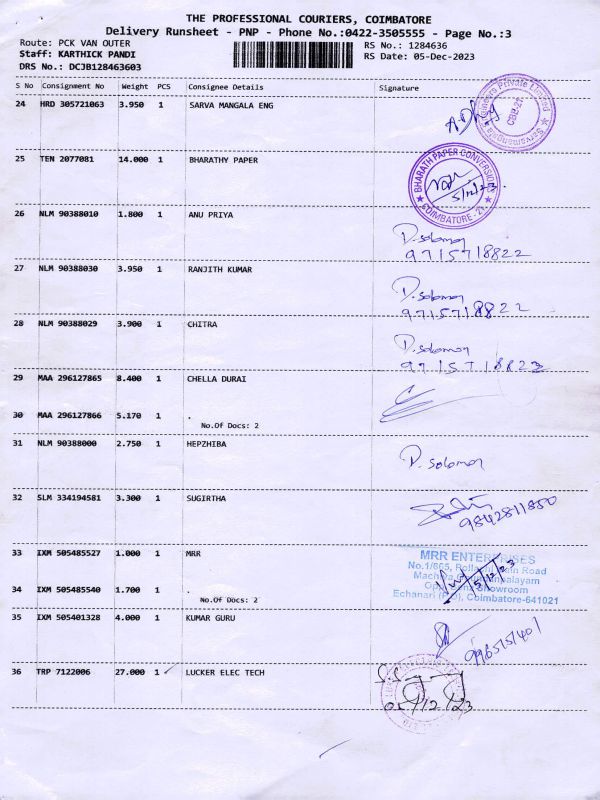 THE PROFESSIONAL COURIERS, COIMBATORE
Delivery Runsheet - PNP - Phone No.:0422-3505555 - Page No.:3
Route: PCK VAN OUTER RS No.: 1284636
Staff: KARTHICK PANDI RS Date: 05-Dec-2023
DRS No.: DCJB128463603
S No Consignment No Weight PCS Consignee Details Signature
24 HRD 305721063 3.950 1 SARVA MANGALA ENG
Private Limited
CBE-21
25 TEN 2077081 14.000 1 BHARATHY PAPER
BHARATH PAPER CONVERSIONS
5/12/23.
COIMBATORE - 21
26 NLM 90388010 1.800 1 ANU PRIYA D. Solomon
9715718822
27 NLM 90388030 3.950 1 RANJITH KUMAR D. Solomon
9715718822
28 NLM 90388029 3.900 1 CHITRA D. Solomon
9715718822
29 MAA 296127865 8.400 1 CHELLA DURAI
30 MAA 296127866 5.170 1 .
No.Of Docs: 2
31 NLM 90388000 2.750 1 HEPZHIBA D. Solomon
32 SLM 334194581 3.300 1 SUGIRTHA
9842811850
33 IXM 505485527 1.000 1 MRR
MRR ENTERPRISES
No.1/665, Road
5/12/23
Showroom
Echanari Coimbatore-641021
34 IXM 505485540 1.700 1 .
No.Of Docs: 2
35 IXM 505401328 4.000 1 KUMAR GURU
36 TRP 7122006 27.000 1 LUCKER ELEC TECH
05/12/23